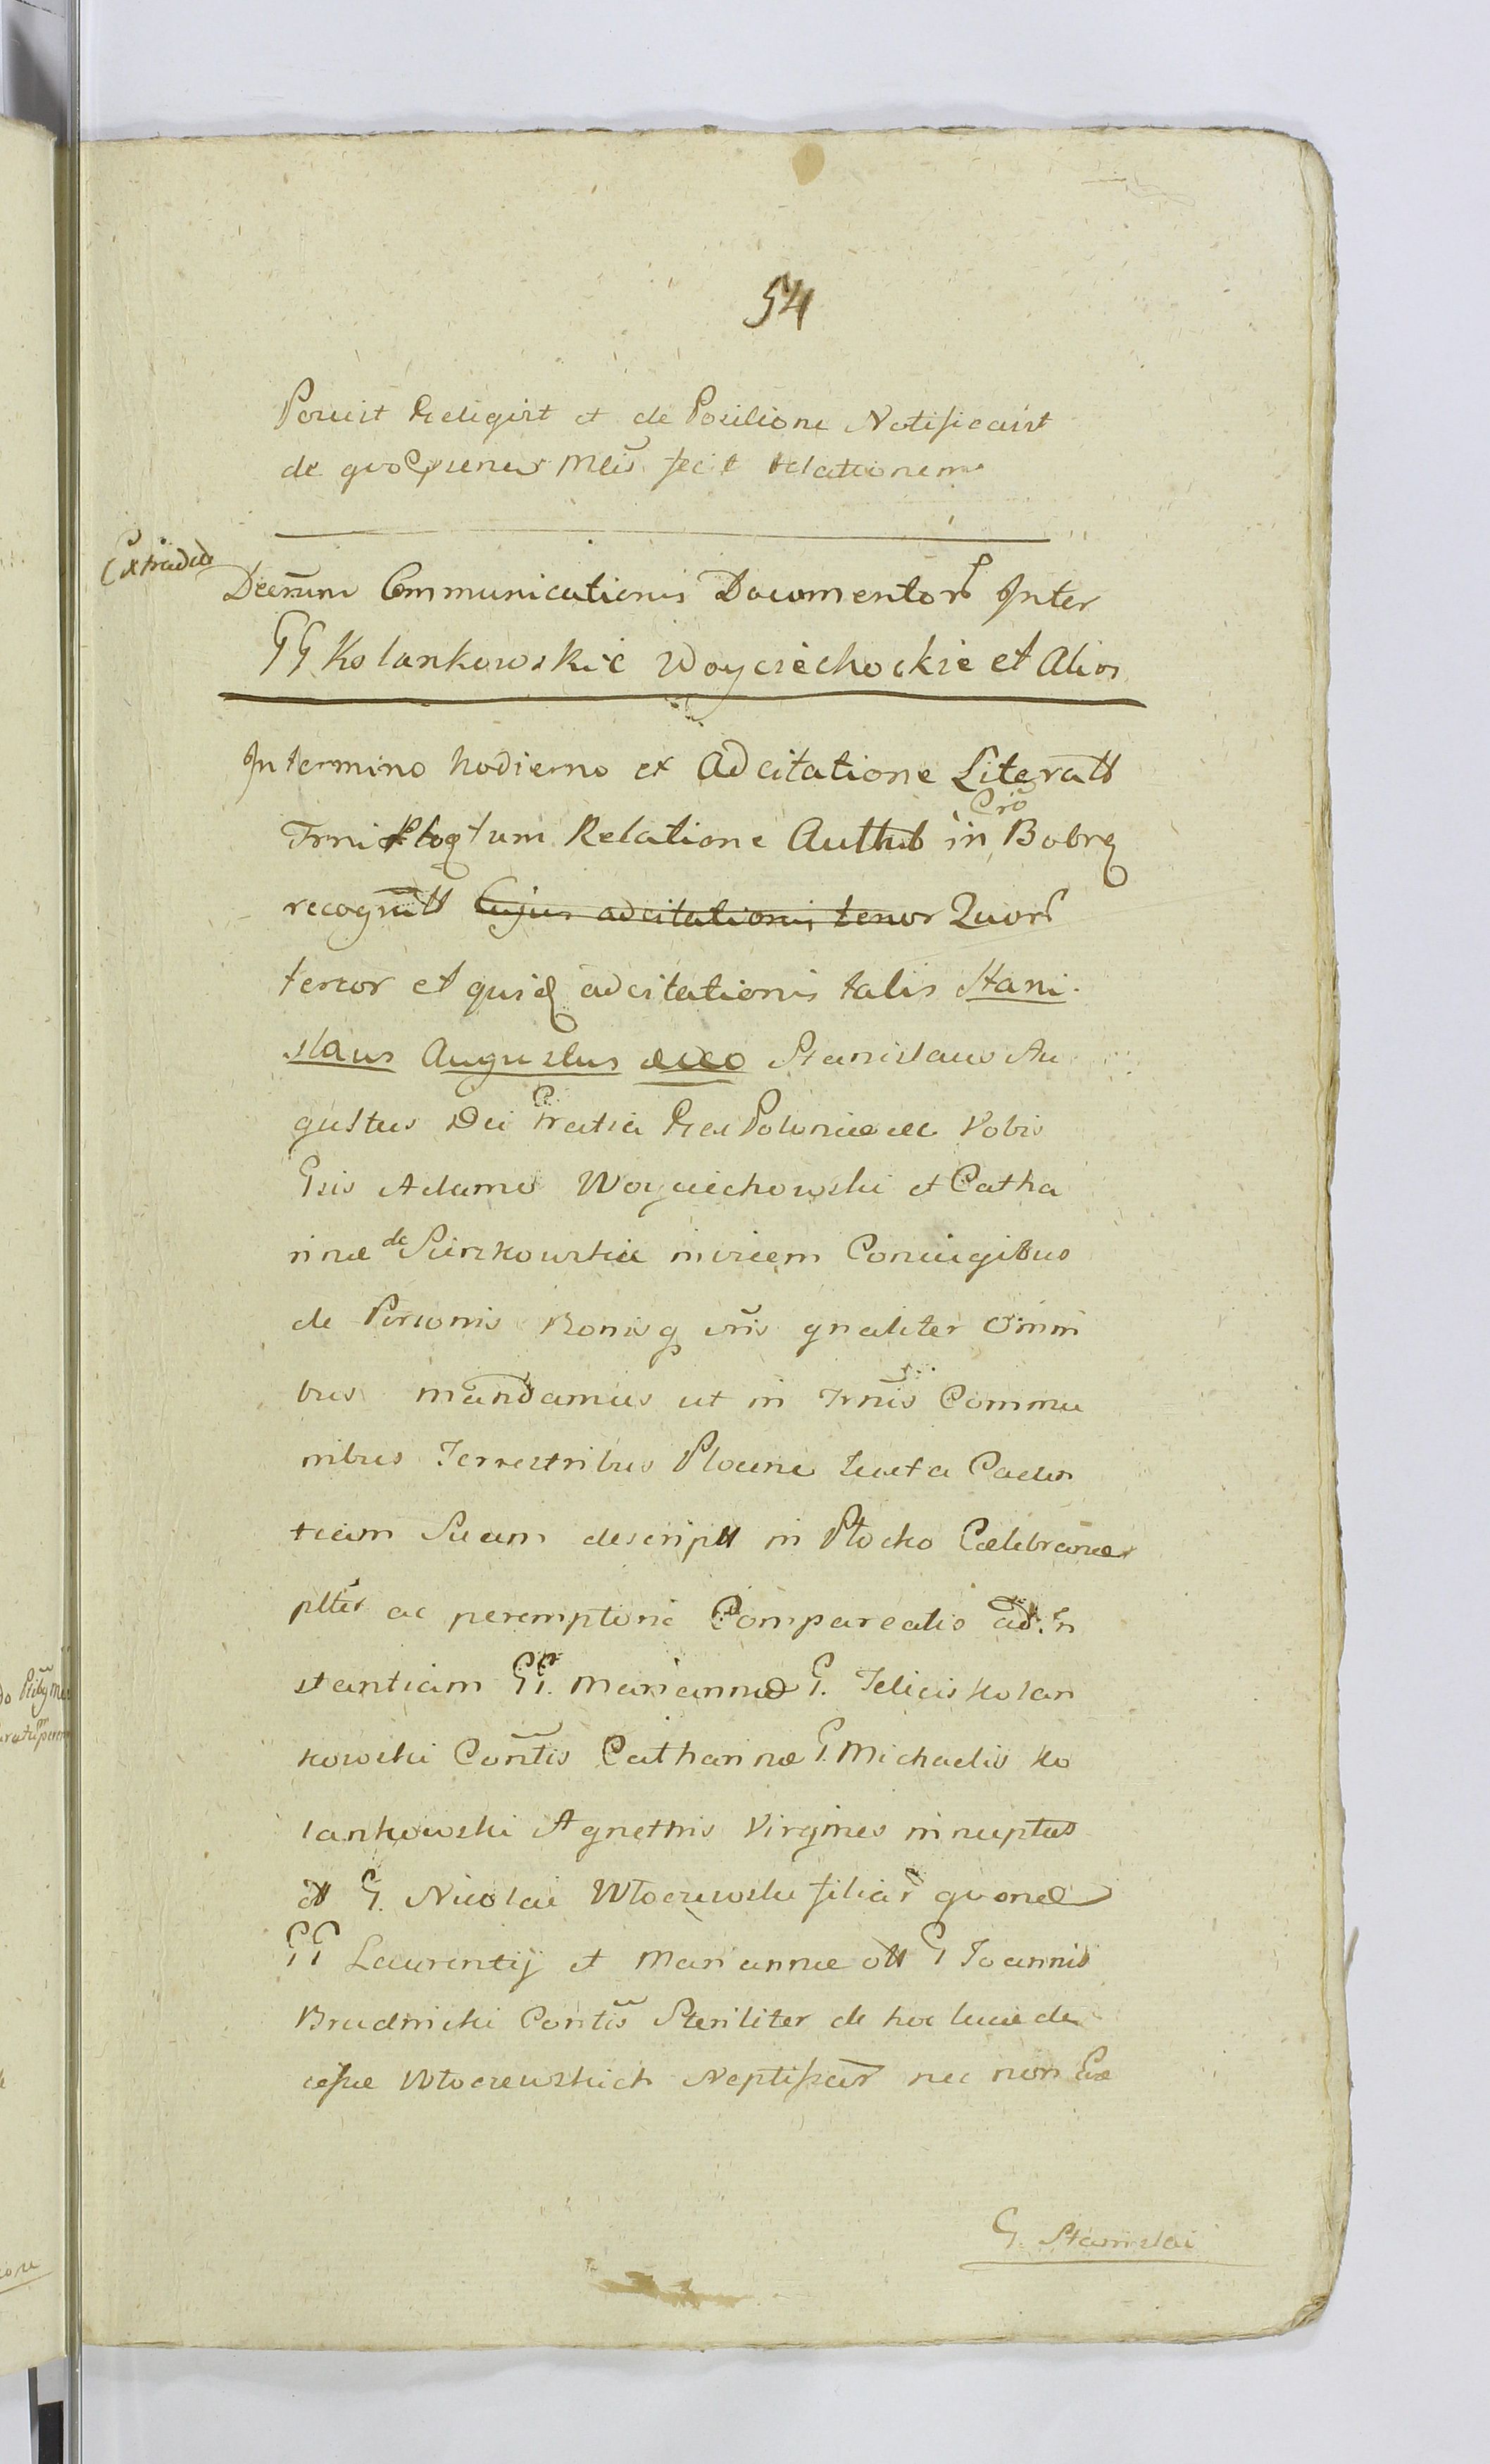 54
Posuit Religit et de Positione Notificavit
de quo Prenes Mlis fecit relationem
Extraded
Decrum Communicationis Documentor Inter
GG Kolankowskie Woyciechockie et Alios
In termino hodierno ex Adcitatione Literatt
Trni Relatione Authtt in Crō Bobrq
recognitt Cujus adcitationis tenor Quor
tenor et quiq adcitationis talis Stani.
slaus Augustus Stanislaus Au
gustus Dei Gratia Rex Poloniae Vobis
Gsis Adamo Woyciechowski et Catha
rinae de invicem Coniugibus
de Personis Bonisq vris gnaliter Omni
bus mandamus ut in Trnis Commu
nibus Terrestribus Plocen Iuxta Caden
tiam Suam descriptt in Plocko Caelebranae
pltēr ac peremptorie Compareatis ad In
stantiam GG. Mariannae G. Felicis Kolan
kowski Contis Catharinae G. Michaelis Ko
lankowski Agnettis Virgines innuptae
ott G. Nicolai Wloczewski filiar quonae
GG Laurentij et Mariannae ott G Joannis
Brudnicki Contis Steriliter de hoc luce de
cessae Wloczewskich Neptissar nec non Evae
G. Stanislai